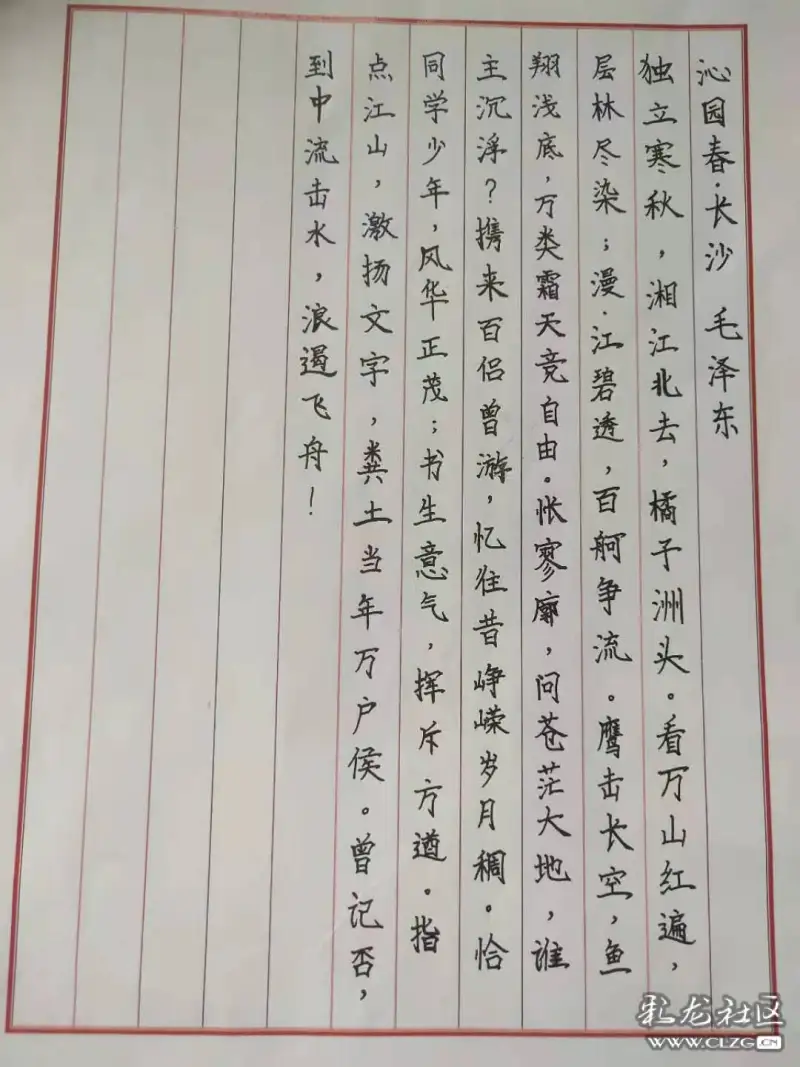 沁园春·长沙 毛泽东
独立寒秋，湘江北去，橘子洲头。看万山红遍，
层林尽染；漫江碧透，百舸争流。鹰击长空，鱼
翔浅底，万类霜天竞自由。怅寥廓，问苍茫大地，谁
主沉浮？携来百侣曾游，忆往昔峥嵘岁月稠。恰
同学少年，风华正茂；书生意气，挥斥方遒。指
点江山，激扬文字，粪土当年万户侯。曾记否，
到中流击水，浪遏飞舟！
彩龙社区
WWW.CLZG.CN